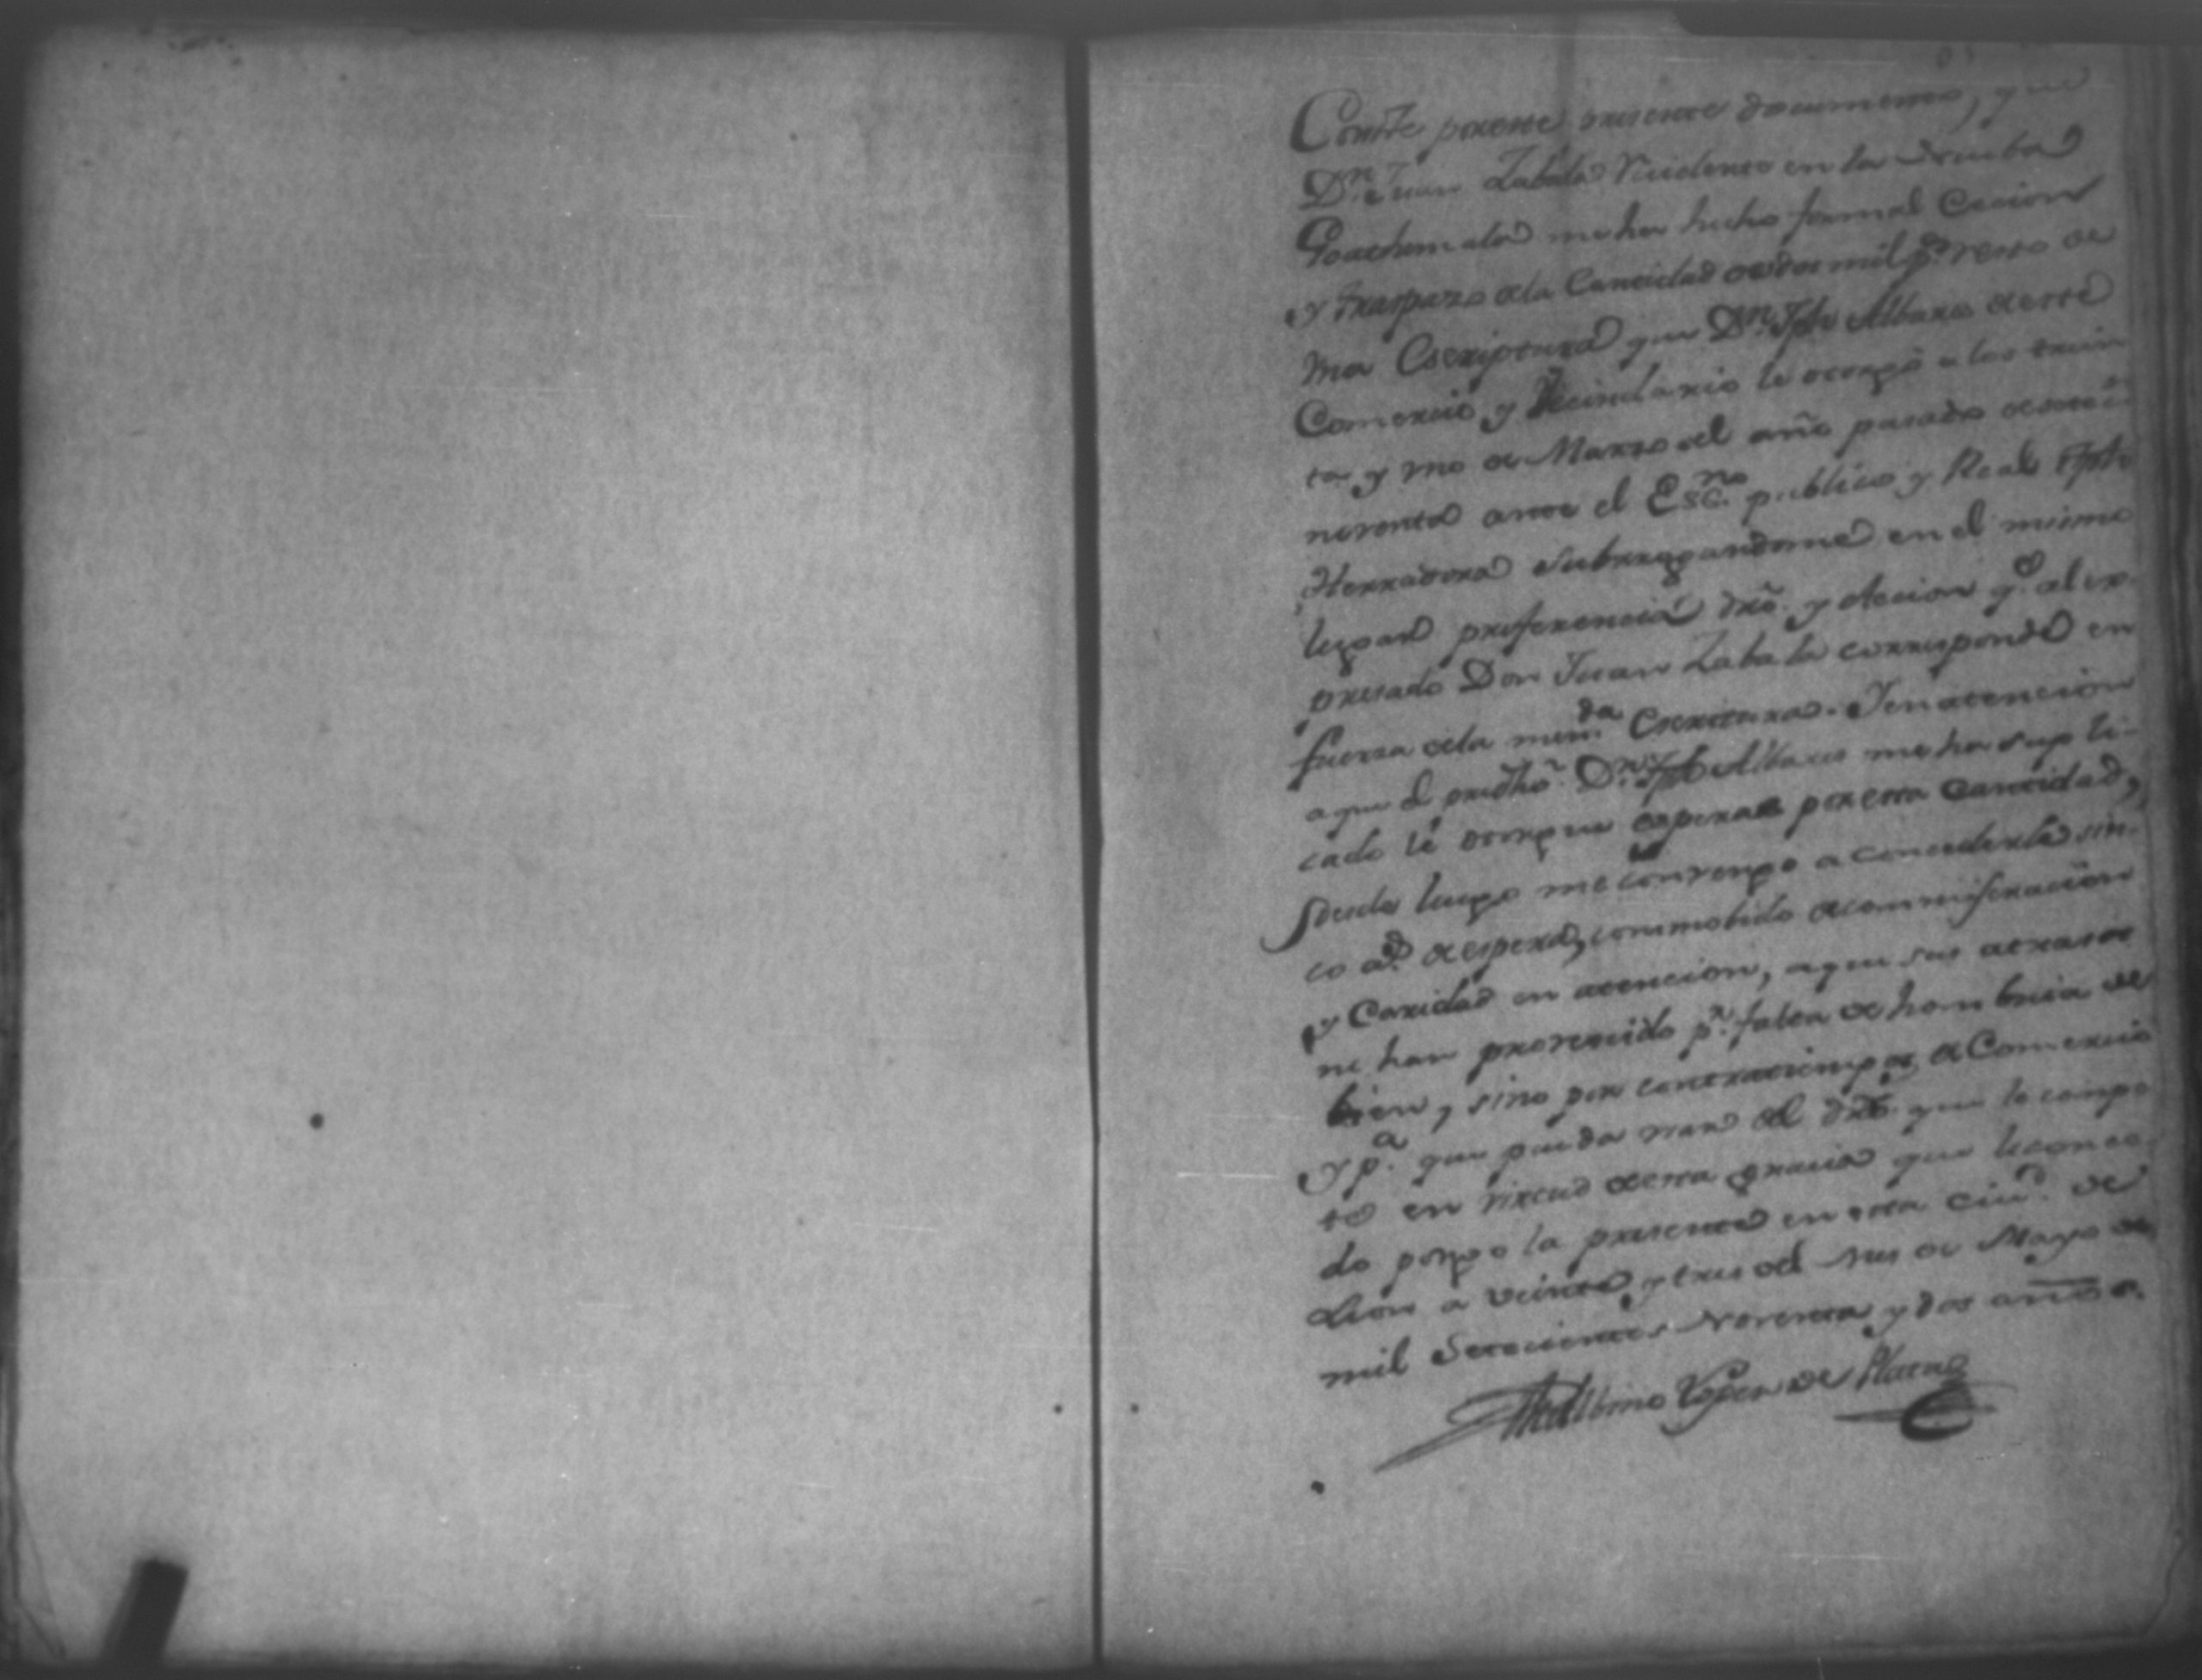 Conste poreste presente documento, que
Dn. Juan Zabala Recidente en la Nueba
Goathemala me ha hecho formal Cecion
y traspazo dela Cantidad de dos mil ps. resto de
una Escriptura que Dn. Jph Albares deeste
Comercio y Vecindario le otorgó a los trein
ta y uno de Marzo del año pasado de
noventa ante el Esc.no publico y Real Jph
Herradora Subrragandome en el mismo
lugar preferencia dro. y Accion q.e al ex-
presado Don Juan Zabala corresponde en
fuerza dela men.da Escritura. Y en atencion
a que el predho. Dn. Jph Albares me ha supli-
cado le otorgue esperas por esta Cantidad,
desde luego me convengo a concederle sin-
co as. de espera, commobido de commiseracion
y Caridad en atencion, a que sus atrasos
no han provenido pr. falta de hombria de
bien, sino por contratiempos de Comercio
y p.a que pueda usar del dro. que le compe
te en virtud de esta gracia que le conce-
do pongo la presente en esta ciud. de
Leon a veinte y tres del mes de Mayo de
mil Setecientos Noventa y dos años.
Albino Lopez de Plata